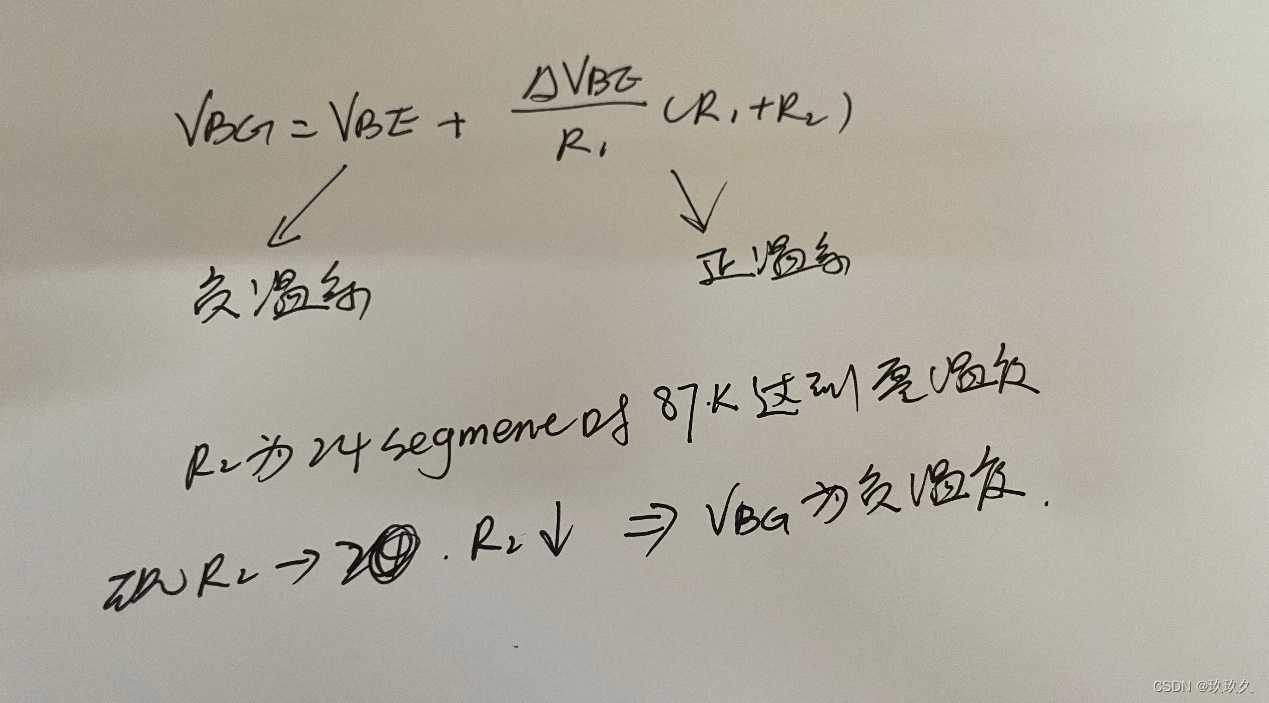 VBG = VBE + ΔVBE/R1 (R1+R2)
负温系 正温系
R2为24 segment of 87.K 达到零温度
R2 → 2 . R2↓ ⇒ VBG为负温度.
CSDN @玖玖久